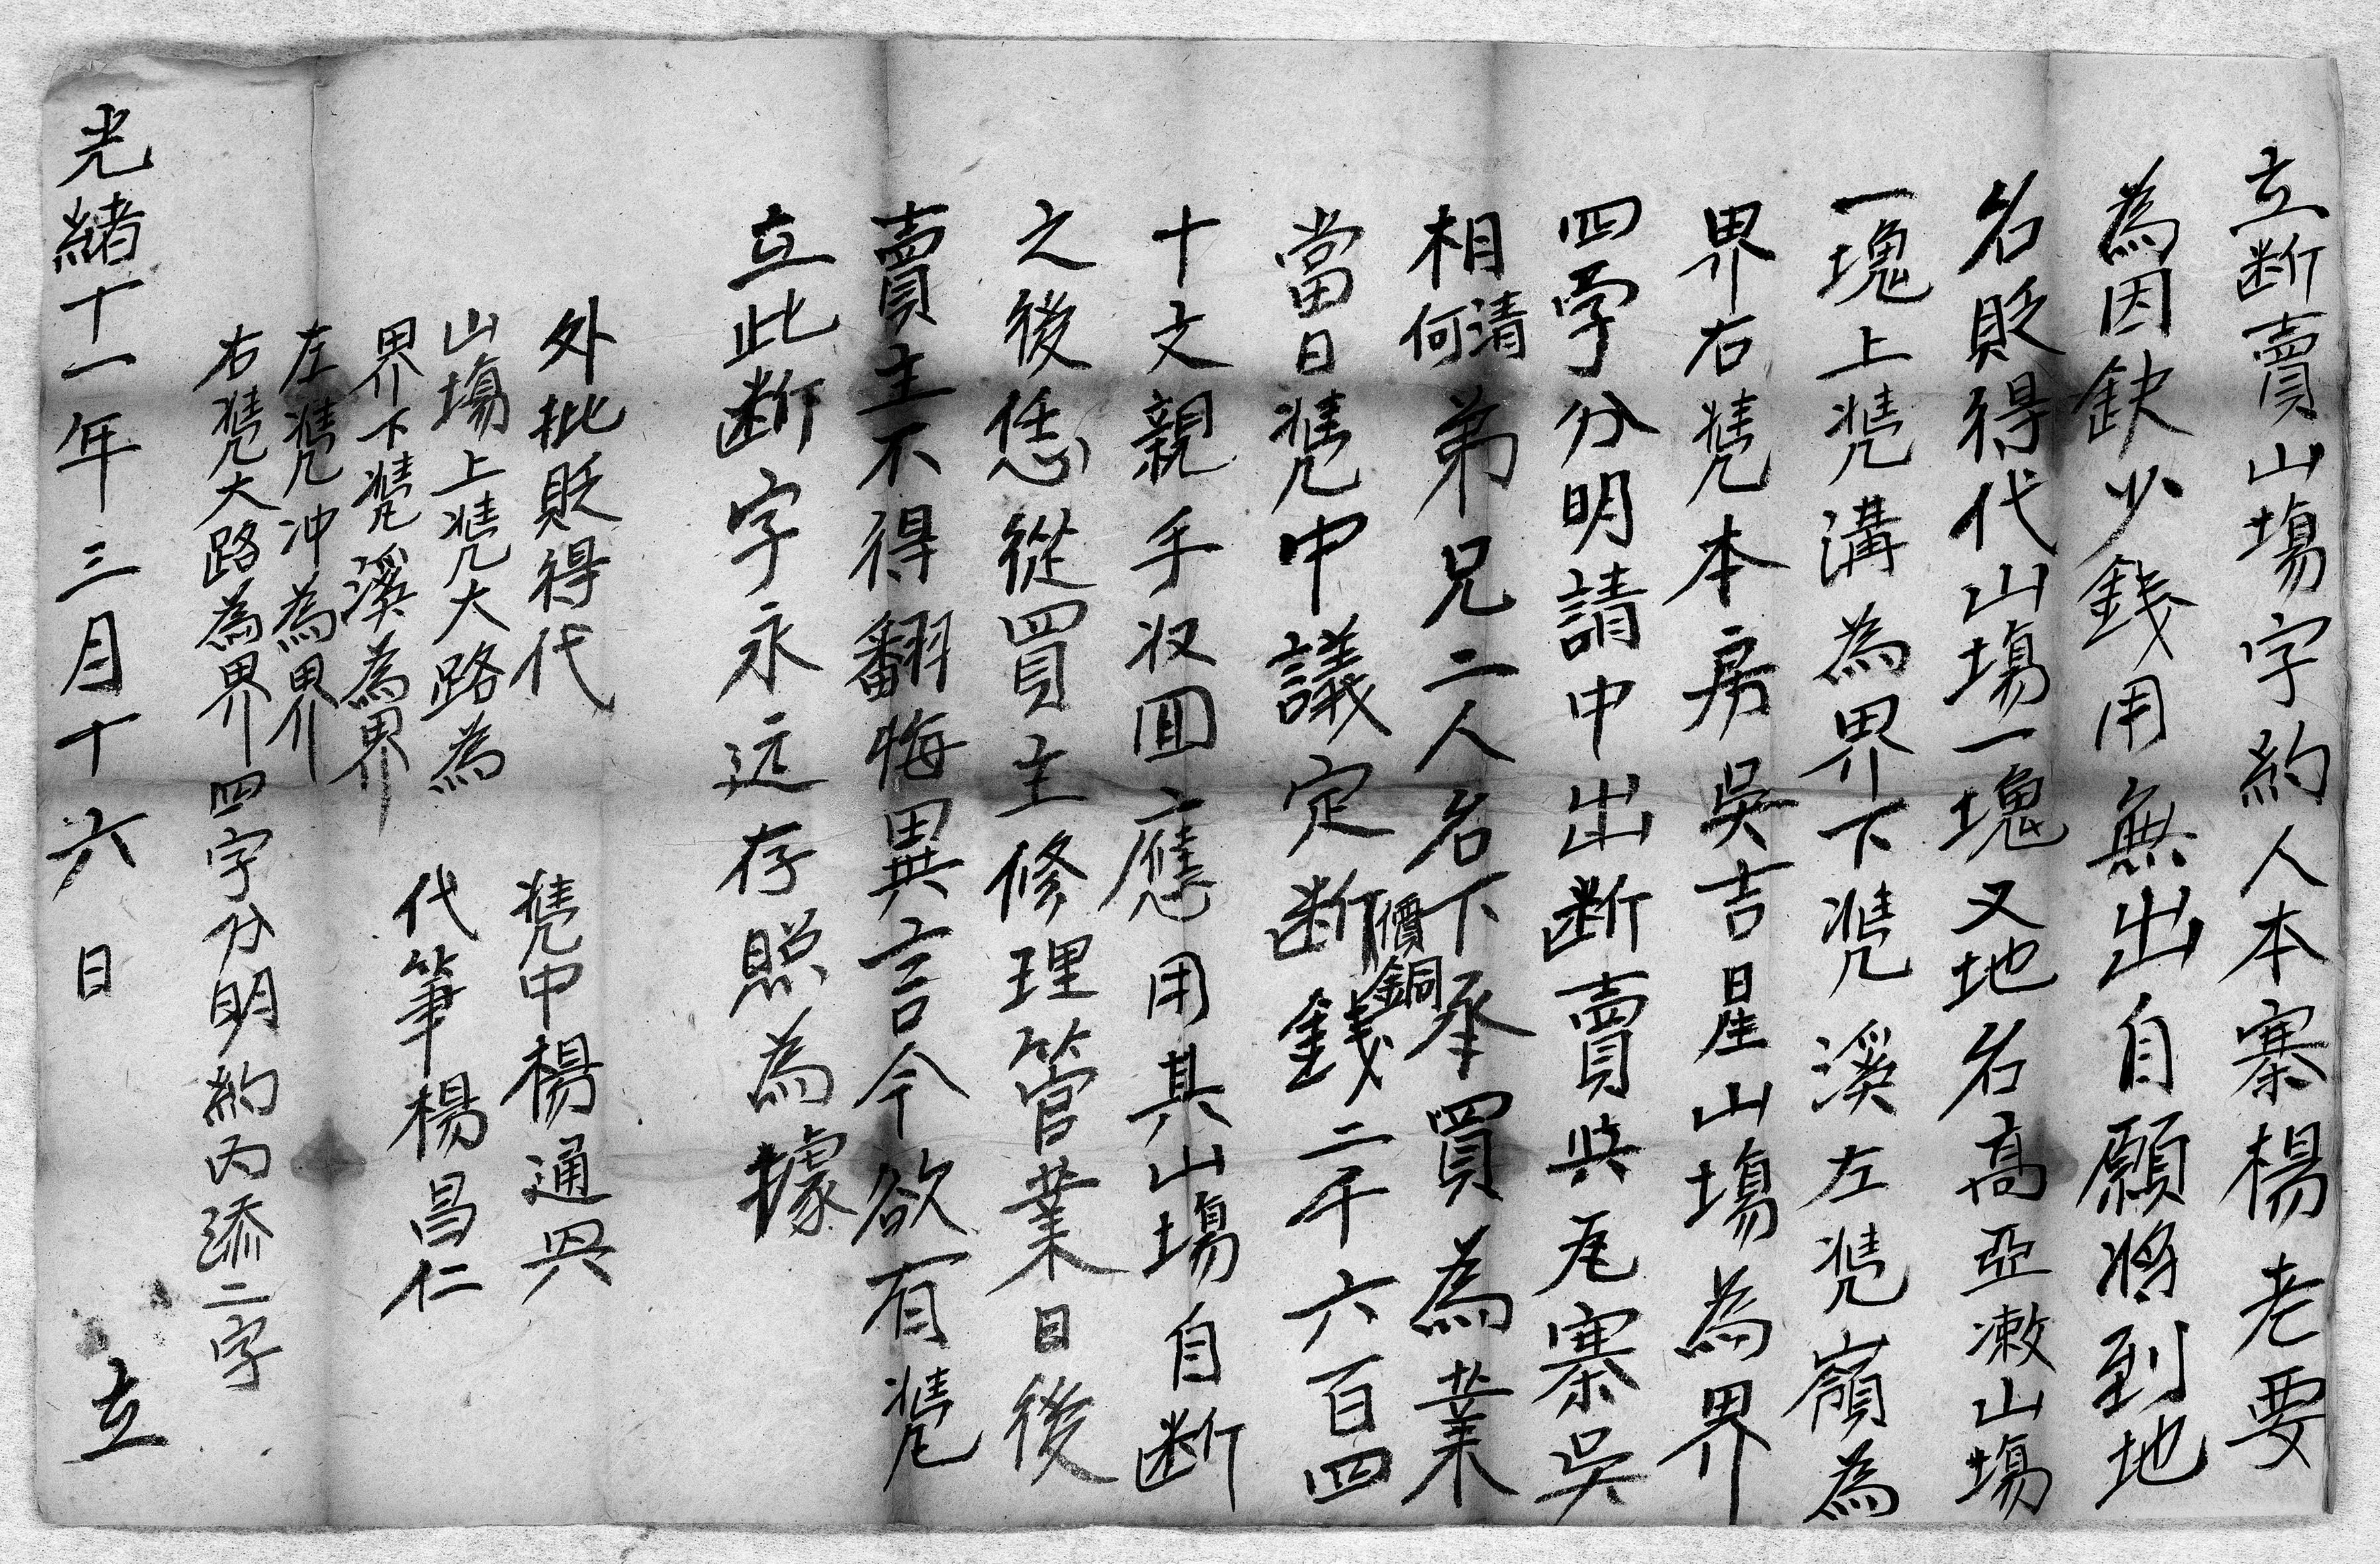 立断賣山塲字約人本寨楊老要
為因鈌少錢用無出自願將到地
名貶得代山塲一塊又地名髙亞漖山塲
一塊上㨿溝為界下㨿溪左㨿嶺為
界右㨿本房吳吉星山塲為界
四字分明請中出断賣與尾寨吳
相清何弟兄二人名下承買為業
當日㨿中議定断價銅錢二千六百四
十文親手収囬應用其山塲自断
之後恁從買主修理管業日後
賣主不得翻悔異言今欲有㨿
立此断字永远存照為據
外批貶得代
山塲上㨿大路為
界下㨿溪為界
左㨿冲為界
右㨿大路為界四字分明約内添二字
㨿中楊通興
代筆楊昌仁
光緒十一年三月十六日立